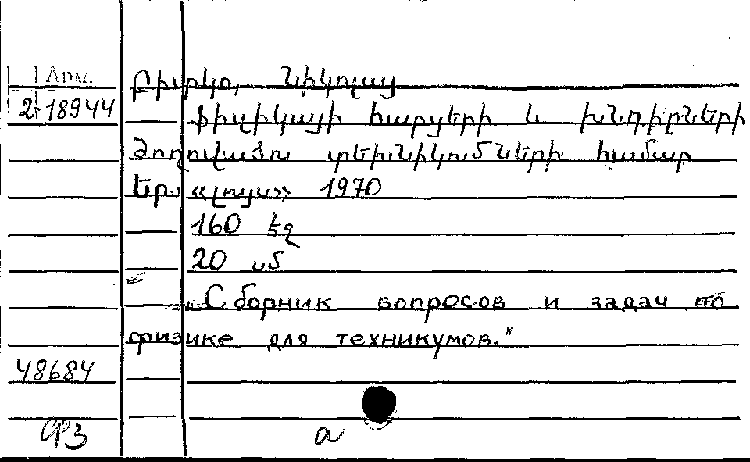 Арм.
2-18944
Քիրկո, Նիկոլայ
Ֆիզիկայի հարցերի և խնդիրների
ժողովածու տեխնիկումների համար
Եր. «Լույս» 1970
160 էջ
20 սմ
„Сборник вопросов и задач по
физике для техникумов."
48684
ФЗ
a